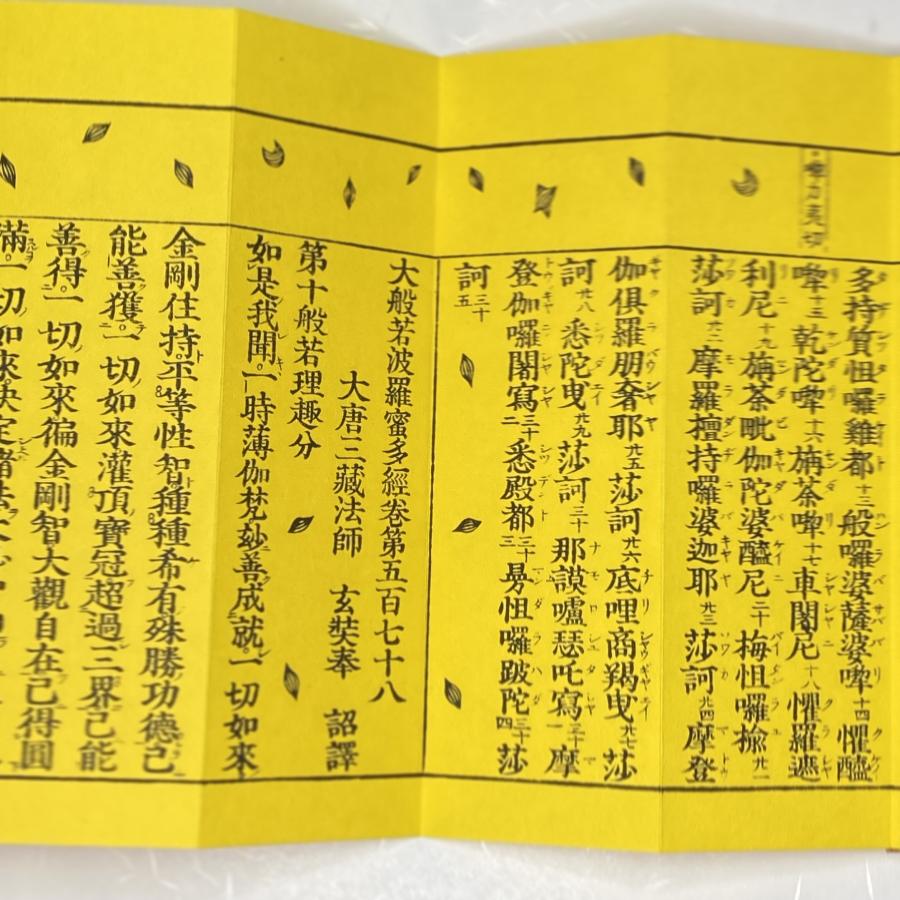 多持質怛囉雞都十三般囉婆薩婆㗚十四懼醯
㗚十三乾陀㗚十六旃荼㗚十七車闍尼十八懼羅遮
利尼十九旃荼毗伽陀婆醯尼二十梅怛囉揄廿一
莎訶廿二摩羅檀持囉婆迦耶廿三莎訶廿四摩登
伽俱羅朋奢耶廿五莎訶廿六底哩商羯曳廿七莎
訶廿八悉陀曳廿九莎訶三十那謨嚧瑟吒寫三十一摩
登伽囉闍寫三十二悉殿都三十三曼怛囉跛陀三十四莎
訶三十五
大般若波羅蜜多經卷第五百七十八
大唐三藏法師 玄奘奉 詔譯
第十般若理趣分
如是我聞。一時薄伽梵妙善成就。一切如來
金剛住持。平等性智種種希有殊勝功德。已
能善獲。一切如來灌頂寶冠超過三界已能
善得。一切如來徧金剛智大觀自在已得圓
滿。一切如來決定諸法